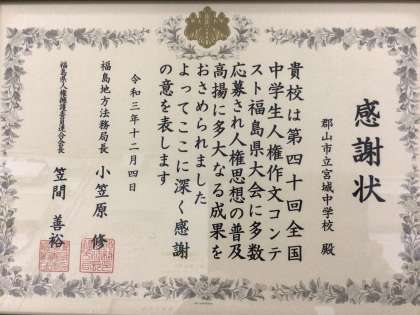 感謝状
郡山市立宮城中学校 殿
貴校は第四十回全国
中学生人権作文コンテ
スト福島県大会に多数
応募され人権思想の普及
高揚に多大なる成果を
おさめられました
よってここに深く感謝
の意を表します
令和三年十二月四日
福島地方法務局長 小笠原 修
福島県人権擁護委員連合会長 笠間 善裕